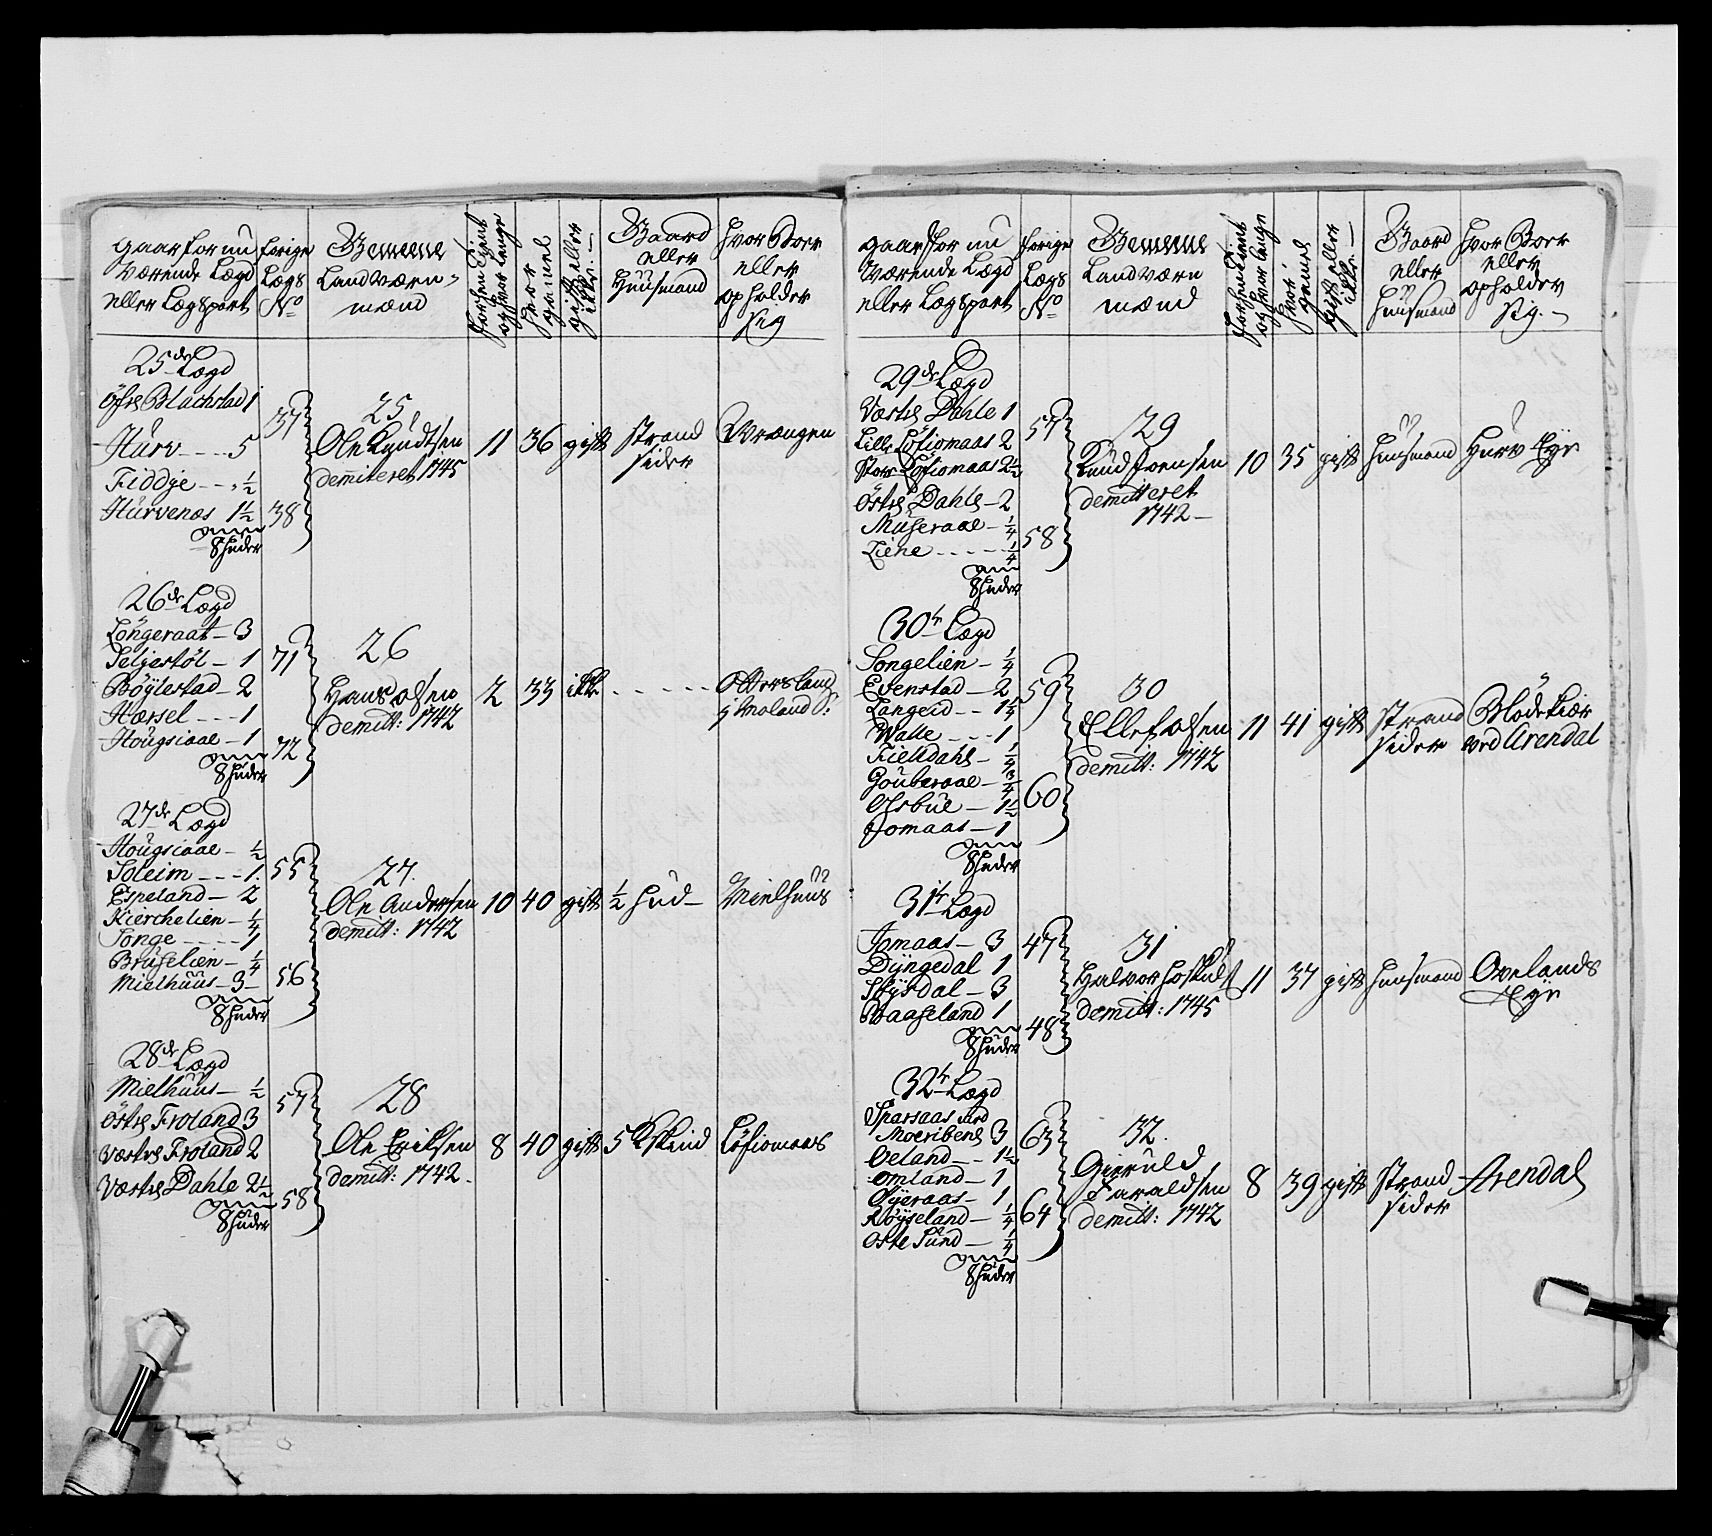 gaar for nu
værende Lægd
eller Lægspart
forige
Lægs
No
Gemeene
Landværn-
mænd
og hvor lenge
hvor
gamel
gift eller
ikke.
Gaard
eller
Huusmand
Hvor Boer
eller
opholder
sig
25de Lægd
Öfre Blachstad 1
Hurv ---- 5
Fiddje --- ½
Hurvenæs 1½
8 huder
37
38
25
Ole Knudtsen
demiteret 1745
11 36 gift strand
sider
Wrængen
26de Lægd
Löngeraat - 3
Seljestöl - 1
Böylestad - 2
Hærsel --- 1
Hougsiaae - 1
8 huder
71
72
26
Hans Olsen
demitt: 1742
2 33 ikke ------
Ottersland
j Moland:
27de Lægd
Hougsiaae - ½
Soleim --- 1
Espeland - 2
Kierchelien - ¼
Songe ---- 1
Bruselien - ¼
Mielhuus - 3 -
8 huder
55
56
27.
Ole Andersen
demitt: 1742
10 40 gift ½ hud - Mielhuus
28de Lægd
Mielhuus - ½
Östre Froland 3
Vœstre Froland 2
Vœstre Dahle 2½
8 huder
57
58
28
Ole Eriksen
demitt: 1742.
8 40 gift 5 Kskind Löfiomaas
gaar for nu
Værende Lægd
eller Lægspart
forige
Lægs
No
Gemeene
Landværn
mænd
og hvor lenge
hvor
gamel
gift eller
ikke
Gaard
eller
Huusmand
Hvor Boer
eller
opholder
sig. -
29de Lægd
Væstre Dahle 1
Lille Löfiomaas 2
Store Löfiomaas 2½
Östre Dahle - 2
Museraae - ¼
Liene ----- ¼
8 huder
57
58
29
Knud Jvensen
demitteret
1742 -
10 35 gift Huusmand Hurv Eye
30te Lægd
Songelien - ¼
Evenstad - 2
Langeid -- 1¼
Walle --- 1
Fieldahl - ¼
Gouberaae - ¾
Olsbue - 1½
Jomaas - 1
8 huder
59
60
30
Ellef Olsen
demitt: 1742
11 41 gift strand
sider
Blödekiær
ved Arendal
31te Lægd
Jomaas - 3
Dyngedal 1
Skysdal - 3
Baaseland 1
8 huder
47
48
31
demitt: 1745
11 37 gift Huusmand Ovelands
Eye
32te Lægd
Sparsaas med
Moeribene 3
Oeland -- 1½
Omland - 1
Oyeraas - 1
Röyseland - ¼
Oste Sund - ¼
8 huder
63
64
32.
Gieruld
Taraldsen
demitt: 1742
8 39 gift strand
sider
Arendal